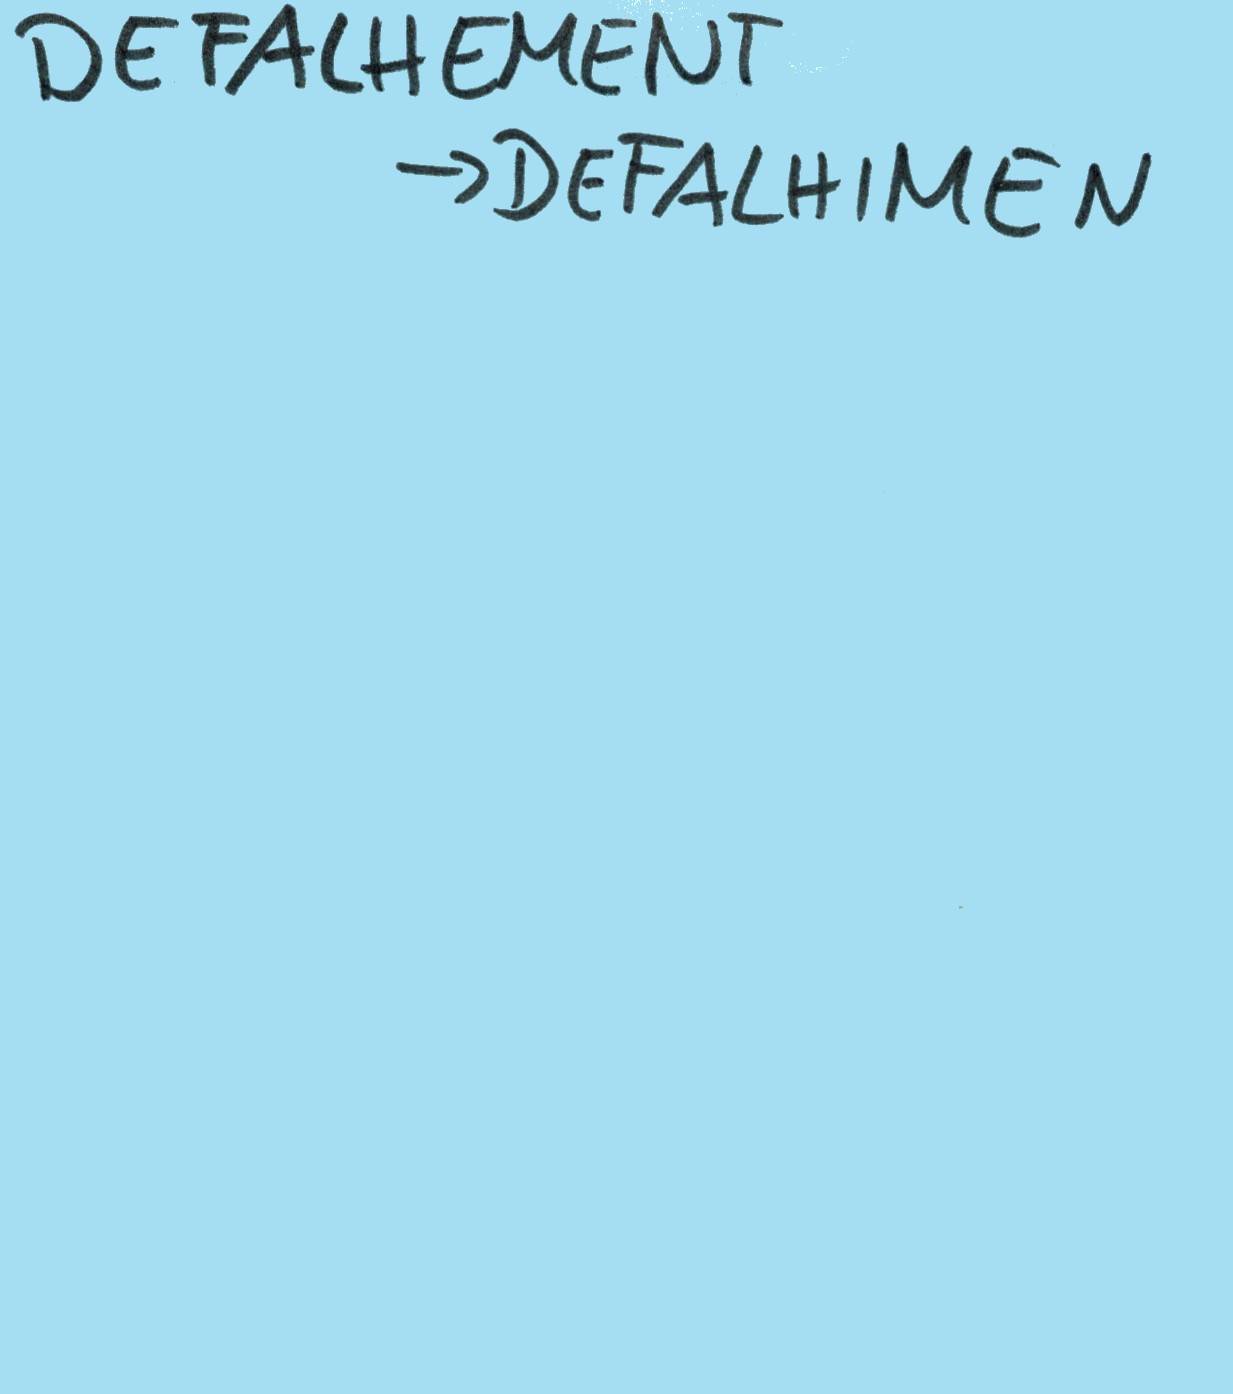 DEFALHEMENT
→DEFALHIMEN